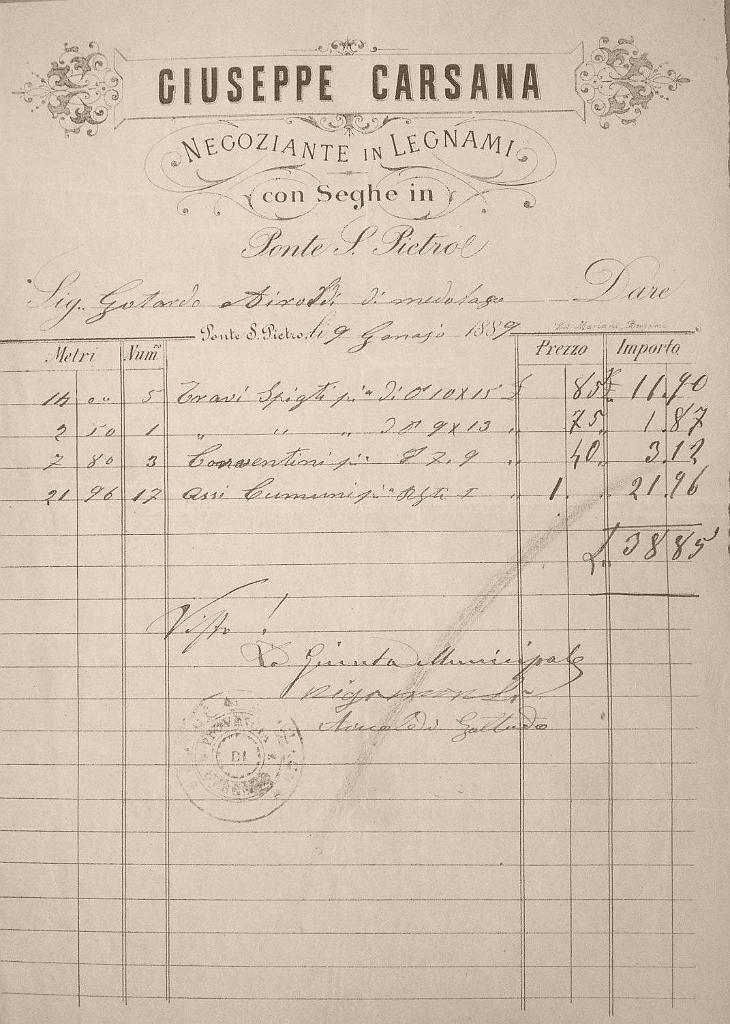 GIUSEPPE CARSANA
NEGOZIANTE IN LEGNAMI
con Seghe in
Ponte S. Pietro
Sig. Gotardo Airoldi di medolago Dare
Ponte S. Pietro, li 9 Genajo 1889
Metri Num Prezzo Importo
14 00 5 Travi Spigti pia di Cm 10 x 15 £ 85 £ 11.90
2 50 1 " " " di Cm 9 x 13 " 75 " 1.87
7 80 3 pia 7.9 " 40 " 3.12
21 96 17 Assi Cumuni pia " 1. " 21.96
£ 38 85
Visto!
La Giunta Municipale
Gottardo
PROVINCIA
DI
BERGAMO